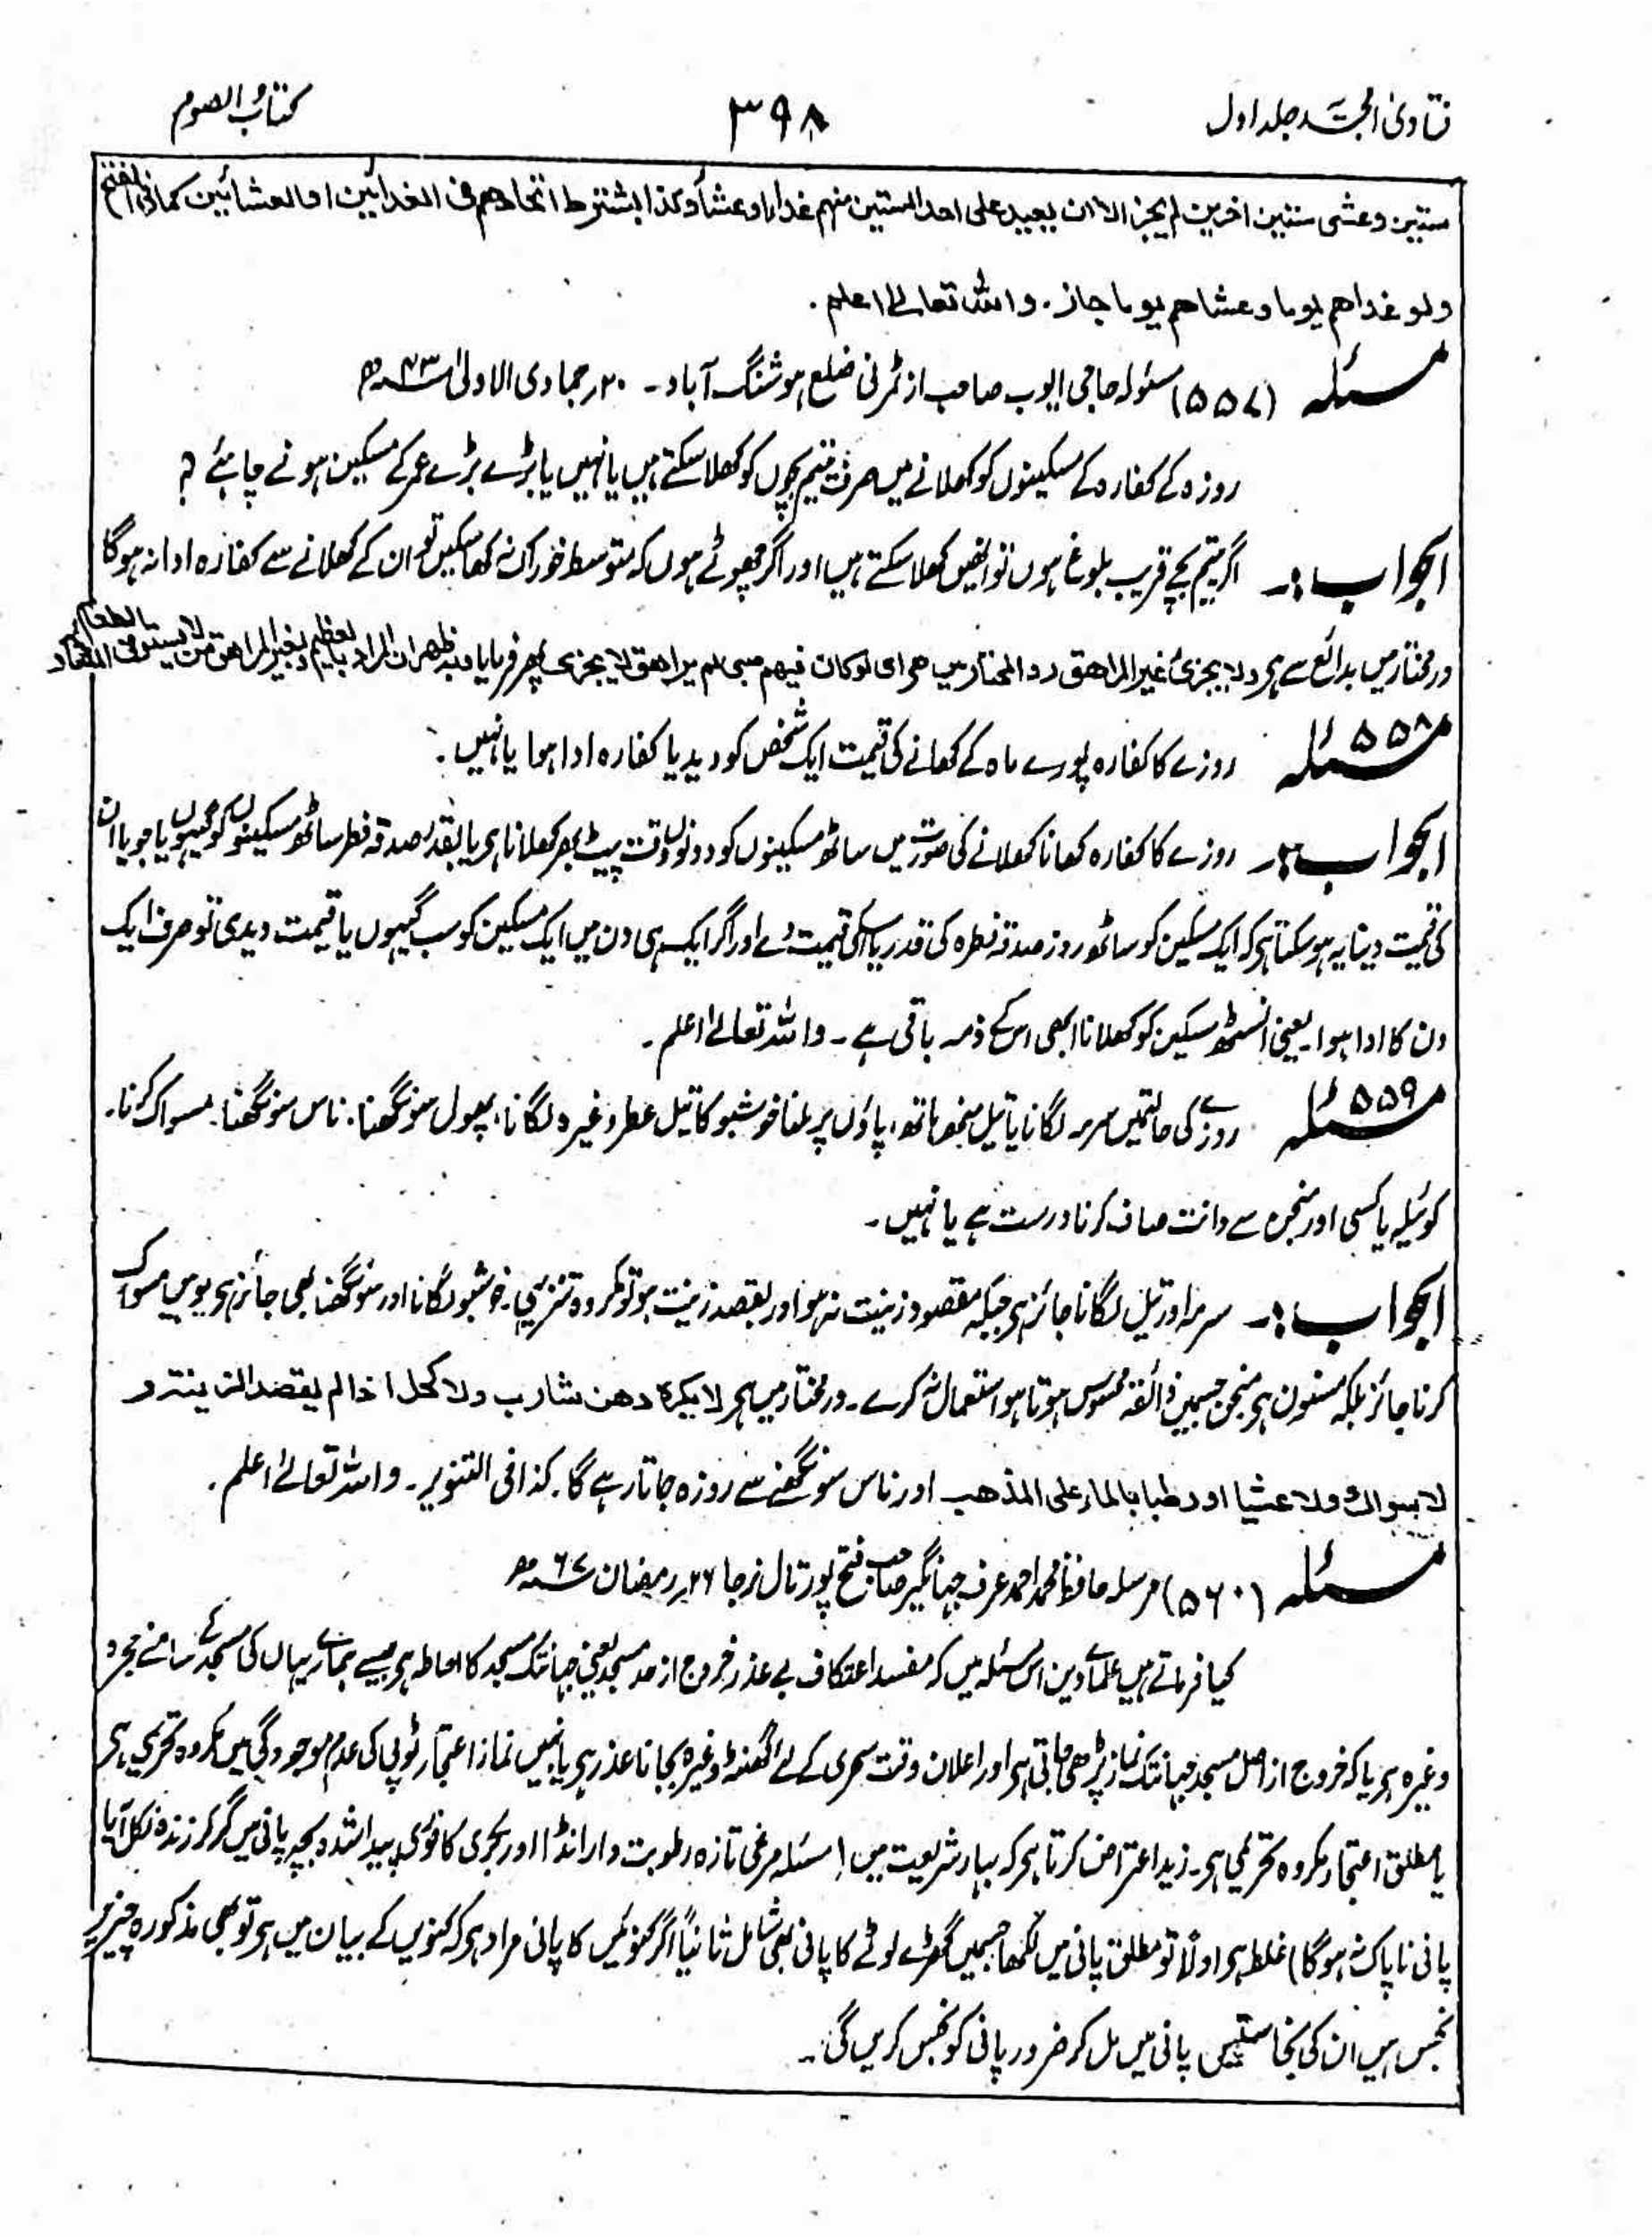 فتاویٰ امجدیہ جلد اول
۳۹۸
کتاب الصوم
ستین وعشی ستین اخرین لم یجز الا ان یعید علی احد الستین منهم غداء او عشاء وکذا یشترط اتحادهم فی الغدائین او العشائین کما فی الفتح
ولو غداهم یوما وعشاهم یوما جاز۔ واللہ تعالیٰ اعلم۔
مسئلہ (۵۵۷) مسئولہ حاجی ایوب صاحب از ٹمرنی ضلع ہوشنگ آباد۔ ۲۰؍ جمادی الاولیٰ ۴۳ھ
روزہ کے کفارہ کے مسکینوں کو کھلانے میں صرف یتیم بچوں کو کھلا سکتے ہیں یا نہیں یا بڑے بڑے عمر کے مسکین ہونے چاہئے ؟
الجواب:۔ اگر یتیم بچے قریب بلوغ ہوں تو انھیں کھلا سکتے ہیں اور اگر چھوٹے ہوں کہ متوسط خوراک نہ کھا سکیں تو ان کے کھلانے سے کفارہ ادا نہ ہوگا
درمختار میں بدائع سے ہے ولا یجزئ غیر المراهق ردالمحتار میں ہے ای لو کان فیهم صبی لم یراهق لا یجزئ پھر فرمایا وبه ظهر ان المراد بالفطیم وبغیر المراهق من لا یستوفی الطعام المعتاد
مسئلہ ۵۵۸ روزے کا کفارہ پورے ماہ کے کھانے کی قیمت ایک شخص کو دیدیا کفارہ ادا ہوا یا نہیں۔
الجواب:۔ روزے کا کفارہ کھانا کھلانے کی صورت میں ساٹھ مسکینوں کو دونوں وقت پیٹ بھر کھلانا ہے یا بقدر صدقہ فطر ساٹھ مسکینوں کو گیہوں یا جو یا ان
کی قیمت دینا یہ ہو سکتا ہے کہ ایک مسکین کو ساٹھ روز صدقہ فطرہ کی قدر یا اسکی قیمت دے اور اگر ایک ہی دن میں ایک مسکین کو سب گیہوں یا قیمت دیدی تو صرف ایک
دن کا ادا ہوا۔ یعنی انسٹھ مسکین کو کھلانا ابھی اس کے ذمہ باقی ہے۔ واللہ تعالےٰ اعلم۔
مسئلہ ۵۵۹ روزے کی حالت میں سرمہ لگانا یا تیل ہاتھ، پاؤں پر ملنا خوشبو کا تیل عطر وغیرہ لگانا، پھول سونگھنا، ناس سونگھنا، مسواک کرنا۔
کوئیلہ یا کسی اور منجن سے دانت صاف کرنا درست ہے یا نہیں۔
الجواب:۔ سرمہ اور تیل لگانا جائز ہے جبکہ مقصود زینت نہ ہو اور بقصد زینت ہو تو مکروہ تنزیہی۔ خوشبو لگانا اور سونگھنا بھی جائز ہے یوہیں مسواک
کرنا جائز بلکہ مسنون ہے منجن جسمیں ذائقہ محسوس ہوتا ہو استعمال نہ کرے۔ درمختار میں ہے لا یکره دهن شارب ولا کحل اذا لم یقصد الزینة و
لا سواك ولا عشیا او رطبا بالماء علی المذهب اور ناس سونگھنے سے روزہ جاتا رہے گا۔ کذا فی التنویر۔ واللہ تعالےٰ اعلم۔
مسئلہ (۵۶۰) مرسلہ حافظ محمد احمد عرف جہانگیر صاحب فتح پور تال نرجا ۲۶؍ رمضان ۶۷ھ
کیا فرماتے ہیں علمائے دین اس مسئلہ میں کہ مفسد اعتکاف بے عذر خروج از حد مسجد یعنی جہانتک مسجد کا احاطہ ہے جیسے ہمارے یہاں کی مسجد کے سامنے حجرہ
وغیرہ ہے یا کہ خروج از اصل مسجد جہانتک نماز پڑھی جاتی ہے اور اعلان وقت سحری کے لئے گھنٹہ وغیرہ بجانا عذر ہے یا نہیں نماز اعتجار ٹوپی کی عدم موجودگی میں مکروہ تحریمی ہے
یا مطلق اعتجار مکروہ تحریمی ہے۔ زید اعتراض کرتا ہے کہ بہار شریعت میں (مسئلہ مرغی تازہ رطوبت دار انڈا اور بکری کا فوری پیدا شدہ بچہ پانی میں گر کر زندہ نکل آیا
پانی ناپاک نہ ہوگا) غلط ہے اولاً تو مطلق پانی میں لکھا جسمیں گھڑے لوٹے کا پانی بھی شامل ثانیاً اگر کنوئیں کا پانی مراد ہے کہ کنویں کے بیان میں ہے تو بھی مذکورہ چیز پر
نجس ہیں ان کی نجاستیں پانی میں مل کر ضرور پانی کو نجس کریں گی۔